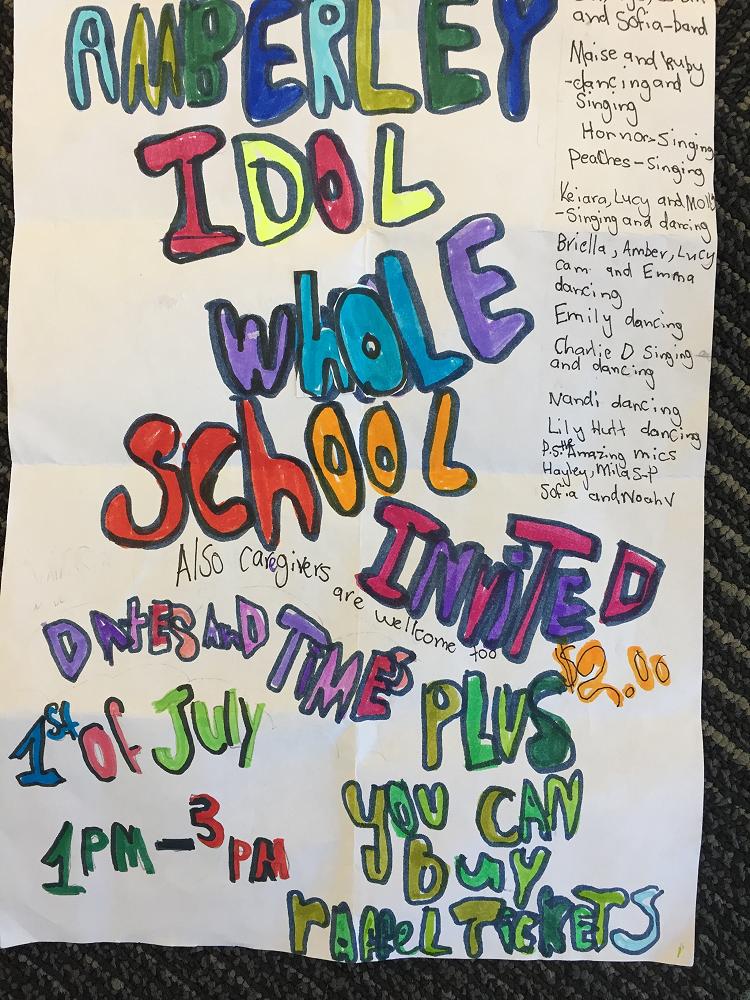 AMBERLEY
IDOL
WhOLE
SchOOL
INViTED
Also caregivers
are wellcome too
DAtES AND TiMES
1st OF JULY
1PM-3PM
$2.00
PLUS
YOU CAN
buy
raffel TickETS
and Sofia-band
Maise and Ruby
-dancing and
Singing
Hornor-Singing
Peaches-Singing
Keiara, Lucy and Molly
-Singing and dancing
Briella, Amber, Lucy
cam and Emma
dancing
Emily dancing
Charlie D Singing
and dancing
Nandi dancing
Lily Hutt dancing
P.S. the Amazing mics
Hayley, Mila S-P
Sofia and Noah V